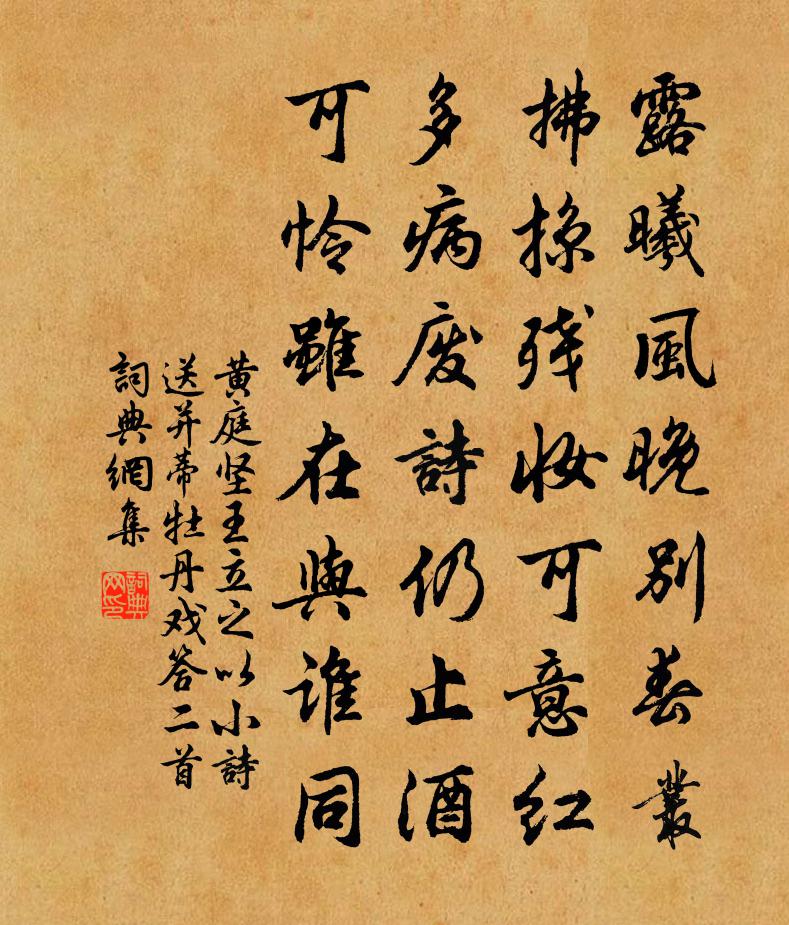 露曦風晚別春叢
拂掠残妆可意红
多病废詩仍止酒
可怜雖在與谁同
黄庭坚王立之以小詩
送并蒂牡丹戏答二首
詞典網集
詞典
网印